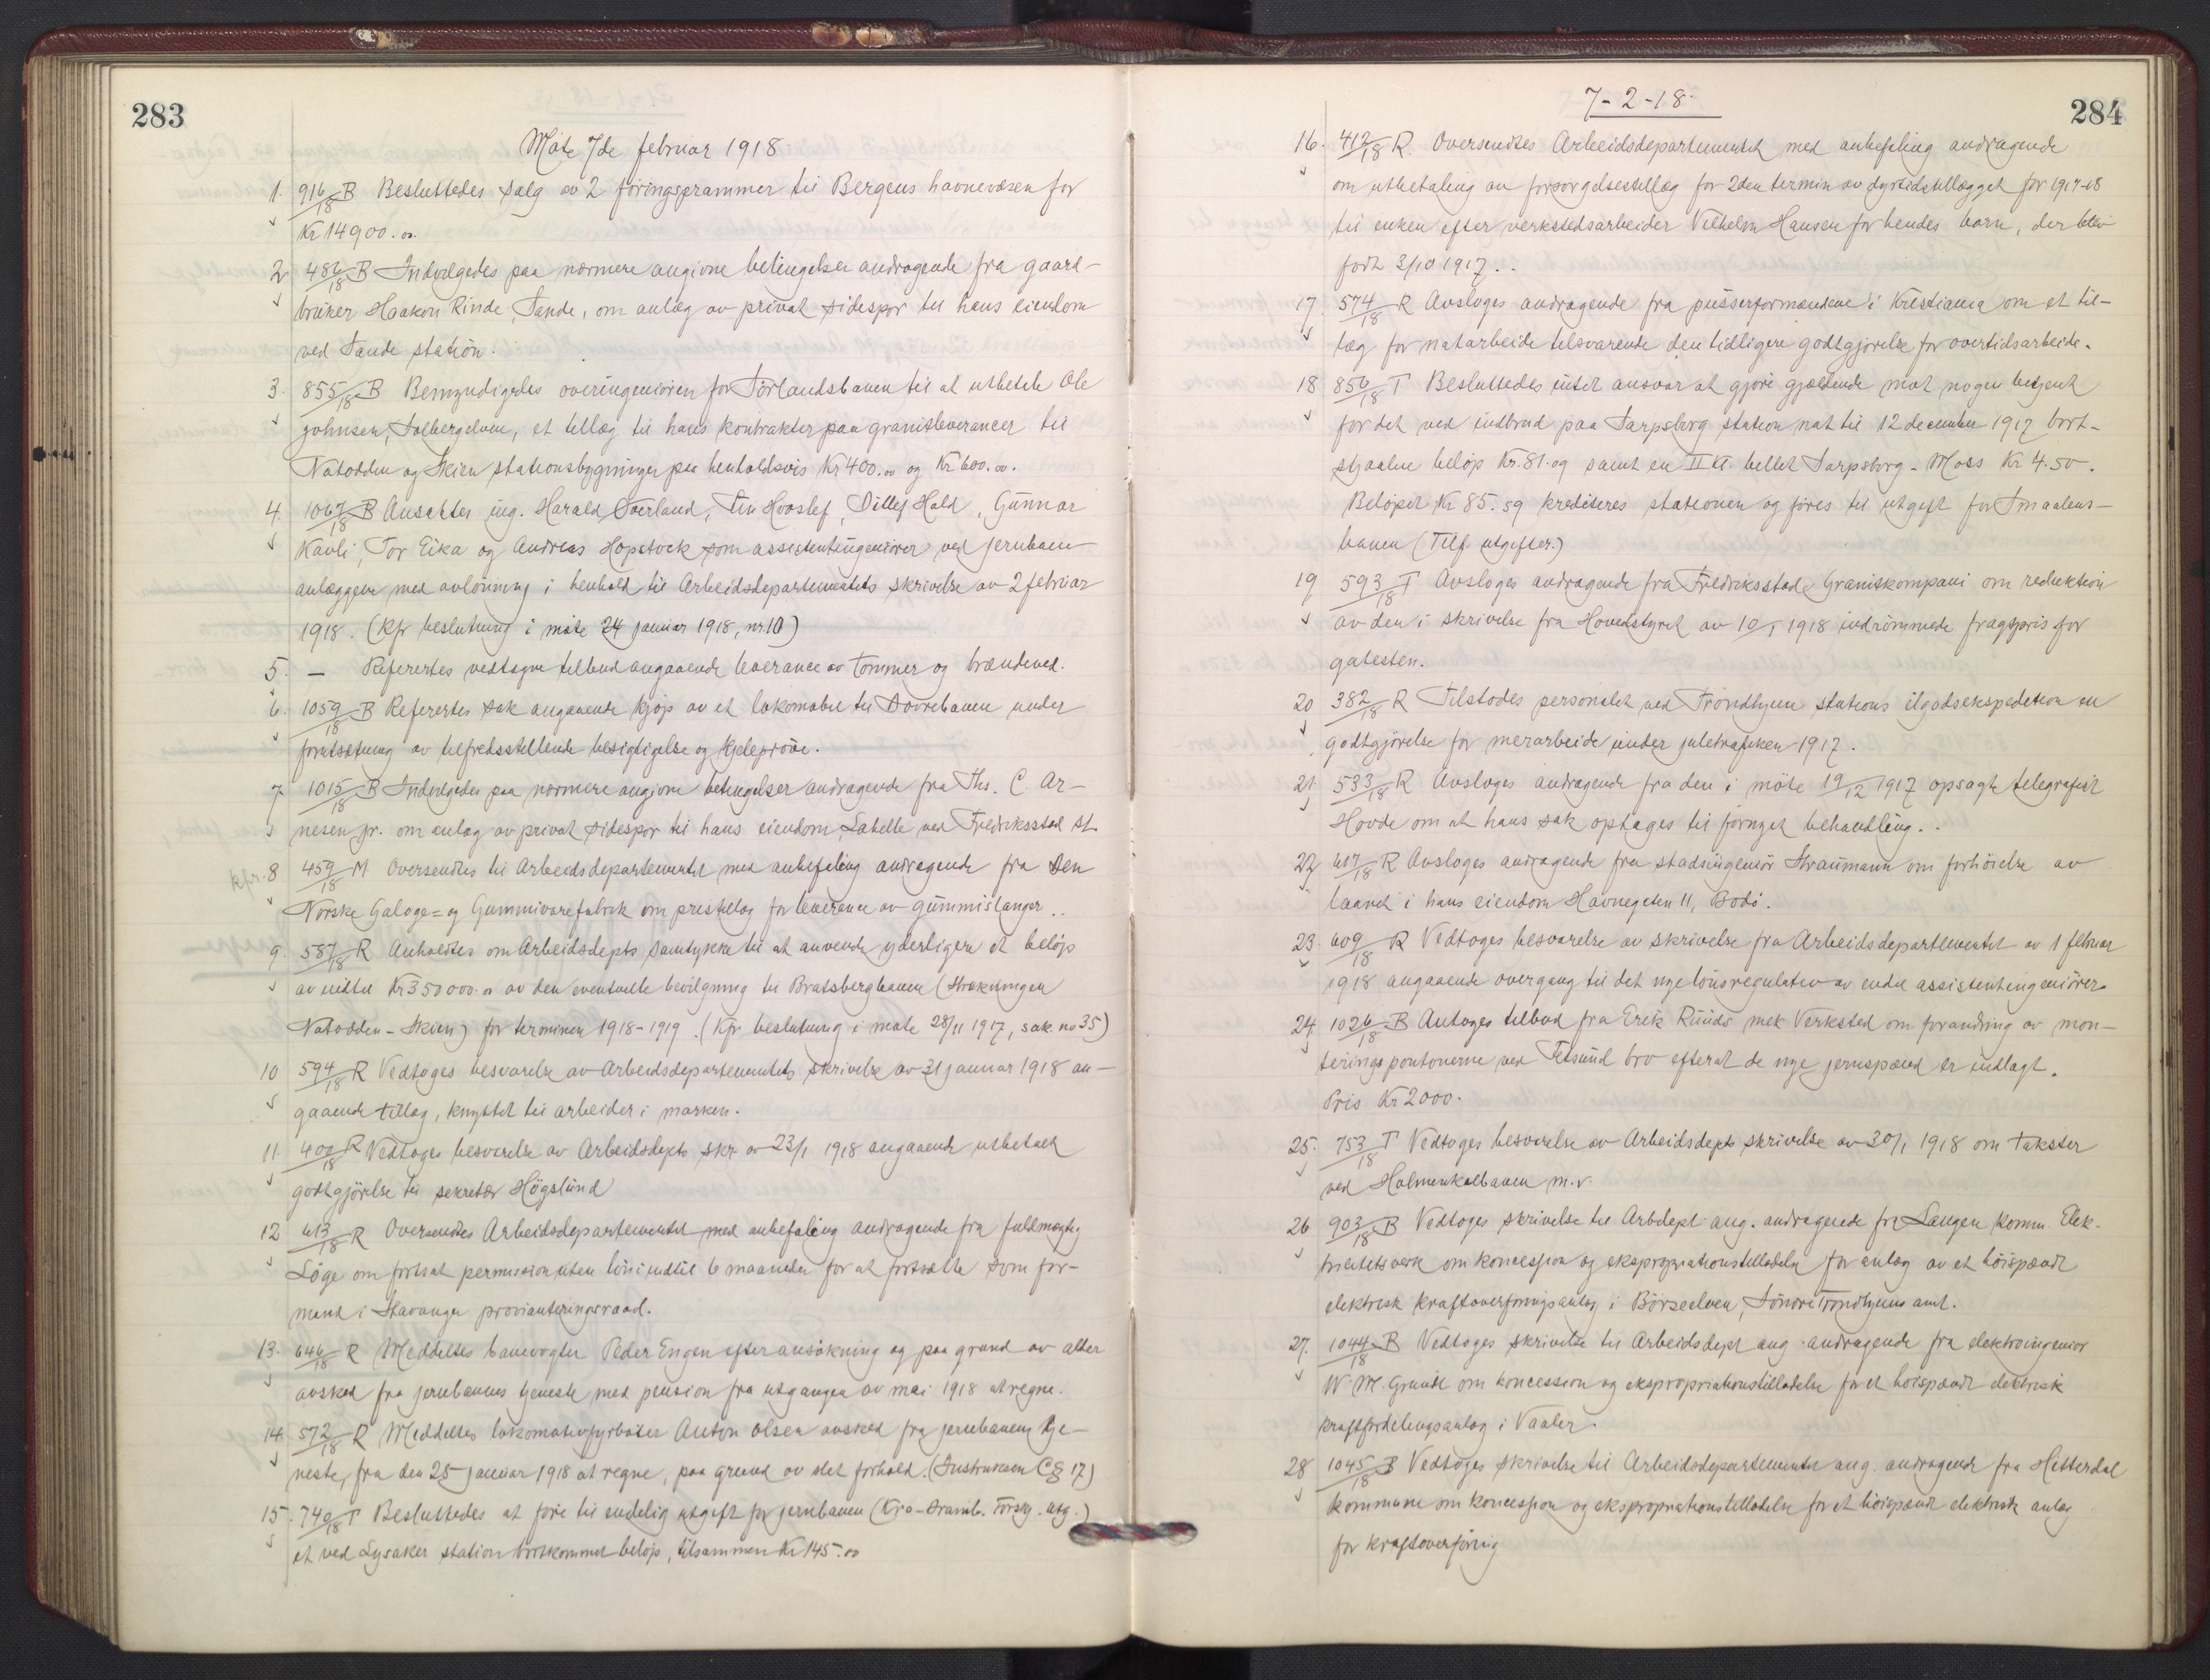 283
Möte 7de februar 1918
1. 916/18 B Besluttedes salg av 2 föringsprammer til Bergens havnevæsen for
Kr 14900.00.
2 486/18 B Indvilgedes paa nærmere angivne betingelser andragende fra gaard-
bruker Haakon Rinde, Sande, om anlæg av privat sidespor til hans eiendom
ved Sande station.
3. 855/18 B Bemyndigedes overingeniören for Sörlandsbanen til at utbetale Ole
Johnsen, Solbergelven, et tillæg til hans kontrakter paa granitleverancer til
Notodden og Skien stationsbygninger paa henholdsvis Kr 400.00 og Kr 600.00.
4. 1067/18 B Ansattes ing. Harald Överland, Finn Hovslef, Ditlef Hald, Gunnar
Kavli, Tor Eika og Andreas Hopstock som assistentingeniörer ved jernbane-
anlæggene med avlönning i henhold til Arbeidsdepartementets skrivelse av 2 februar
1918. (Kfr beslutning i möte 24 januar 1918, nr 10)
5. — Referertes vedtagne tilbud angaaende leverance av tömmer og brændeved.
6. 1059/18 B Referertes sak angaaende kjöp av et lokomobil til Dovrebanen under
forutsætning av tilfredsstillende besigtigelse og kjelepröve.
7 1015/18 B Indvilgedes paa nærmere angivne betingelser andragende fra Ths. C. Ar-
nesen jr. om anlæg av privat sidespor til hans eiendom Labelle ved Fredriksstad st.
kfr. 8 459/18 M Oversendtes til Arbeidsdepartementet med anbefaling andragende fra Den
Norske Galoge= og Gummivarefabrik om pristillæg for leverance av gummislanger..
9. 587/18 R Anholdtes om Arbeidsdepts samtykke til at anvende yderligere et belöp
av indtil Kr 350000.00 av den eventuelle bevilgning til Bratsbergbanen (Strækningen
Notodden - Skien) for terminen 1918-1919. (Kfr beslutning i möte 28/11 1917, sak no 35)
10 594/18 R Vedtoges besvarelse av Arbeidsdepartementets skrivelse av 31 januar 1918 an-
gaaende tillæg, knyttet til arbeider i marken.
11. 400/18 R Vedtoges besvarelse av Arbeidsdepts skr. av 23/1 1918 angaaende utbetalt
godtgjörelse til sekretær Högslund
12 613/18 R Oversendtes Arbeidsdepartementet med anbefaling andragende fra fuldmægtig
Löge om fortsat permission uten lön indtil 6 maaneder for at fortsætte som for-
mand i Stavanger provianteringsraad.
13. 646/18 R Meddeltes banevogter Peder Engen efter ansökning og paa grund av alder
avsked fra jernbanens tjeneste med pension fra utgangen av mai 1918 at regne.
14. 572/18 R Meddeltes lokomotivfyrböter Anton Olsen avsked fra jernbanens tje-
neste, fra den 25 januar 1918 at regne, paa grund av slet forhold. (Instruksen C § 17)
15. 740/18 T Besluttedes at före til endelig utgift for jernbanen (Kra-Dramb. Forsk. utg.)
et ved Lysaker station bortkommet belöp, tilsammen Kr 145.00
284
7-2-18.
16. 412/18 R. Oversendtes Arbeidsdepartementet med anbefaling andragende
om utbetaling av forsörgelsestillæg for 2den termin av dyrtidstillægget for 1917-18
til enken efter verkstedsarbeider Vilhelm Hansen for hendes barn, der blev
födt 3/10 1917..
17. 574/18 R Avsloges andragende fra pusserformændene i Kristiania om et til-
læg for natarbeide tilsvarende den tidligere godtgjörelse for overtidsarbeide.
18 856/18 T Besluttedes intet ansvar at gjöre gjældende mot nogen betjent
for det ved indbrud paa Sarpsborg station nat til 12 december 1917 bort-
stjaalne belöp Kr. 81.09 samt en II kl. billet Sarpsborg - Moss Kr 4.50.
Belöpet Kr 85.59 krediteres stationen og föres til utgift for Smaalens-
banen (Tilf. utgifter.)
19 593/18 T Avsloges andragende fra Fredriksstad Granitkompani om reduktion
av den i skrivelse fra Hovedstyret av 10/1 1918 indrömmede fragtpris for
gatesten.
20 382/18 R Tilstodes personalet ved Trondhjem stations ilgodsekspedition en
godtgjörelse for merarbeide under juletrafiken 1917.
21. 533/18 R Avsloges andragende fra den i möte 19/12 1917 opsagte telegrafist
Hovde om at hans sak optages til fornyet behandling..
22 617/18 R Avsloges andragende fra stadsingeniör Straumann om forhöielse av
laanet i hans eiendom Havnegaten 11, Bodö.
23. 609/18 R Vedtoges besvarelse av skrivelse fra Arbeidsdepartementet av 1 februar
1918 angaaende overgang til det nye lönsregulativ av endel assistentingeniörer
24. 1026/18 B Antoges tilbud fra Erik Ruuds mek Verksted om forandring av mon-
teringspontonerne ved Fetsund bro efterat de nye jernspænd er indlagt.
Pris Kr 2000.
25. 753/18 T Vedtoges besvarelse av Arbeidsdepts skrivelse av 30/1 1918 om takster
ved Holmenkolbanen m.v.
26 903/18 B Vedtoges skrivelse til Arbdept ang. andragende fra Langen Komm. Elek-
tricitetsverk om koncession og ekspropriationstilladelse for anlæg av et höispændt
elektrisk kraftoverföringsanlæg i Börseelven, Söndre Trondhjems amt.
27. 1044/18 B Vedtoges skrivelse til Arbeidsdept ang. andragende fra elektroingeniör
W. M. Grundt om koncession og ekspropriationstilladelse for et höispændt elektrisk
kraftfordelingsanlæg i Vaaler.
28 1045/18 B Vedtoges skrivelse til Arbeidsdepartementet ang. andragende fra Hitterdal
kommune om koncession og ekspropriationstilladelse for et höispændt elektrisk anlæg
for kraftoverföring